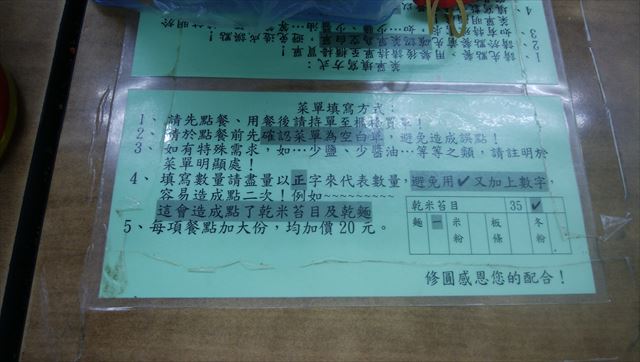 菜單填寫方式：
1、請先點餐、用餐後請持單至櫃檯買單！
2、請於點餐前先確認菜單為空白單，避免造成誤點！
3、如有特殊需求，如…少鹽、少醬油…等等之類，請註明於
菜單明顯處！
4、填寫數量請盡量以正字來代表數量，避免用✔又加上數字，
容易造成點二次！例如~~~~~~~~~
這會造成點了乾米苔目及乾麵
乾米苔目 35 ✔
麵 一 米粉 板條 冬粉
5、每項餐點加大份，均加價20元。
修圓感恩您的配合！
菜單填寫方式：
1、請先點餐、用餐後請持單至櫃檯買單！